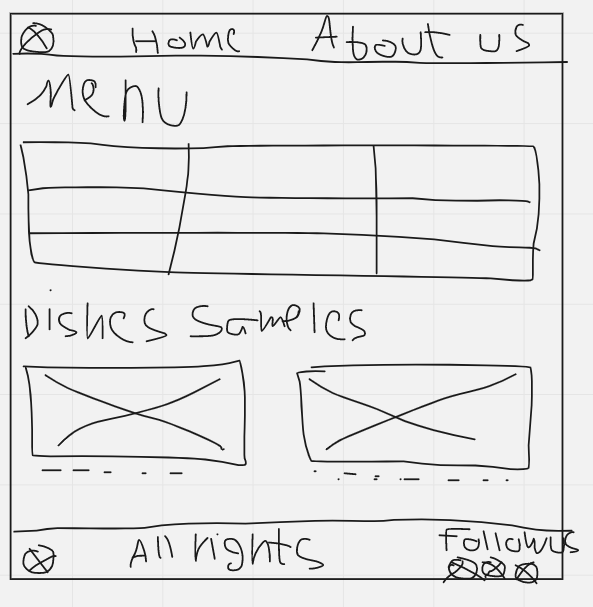 Home About us
Menu
Dishes Samples
All rights
Follow us